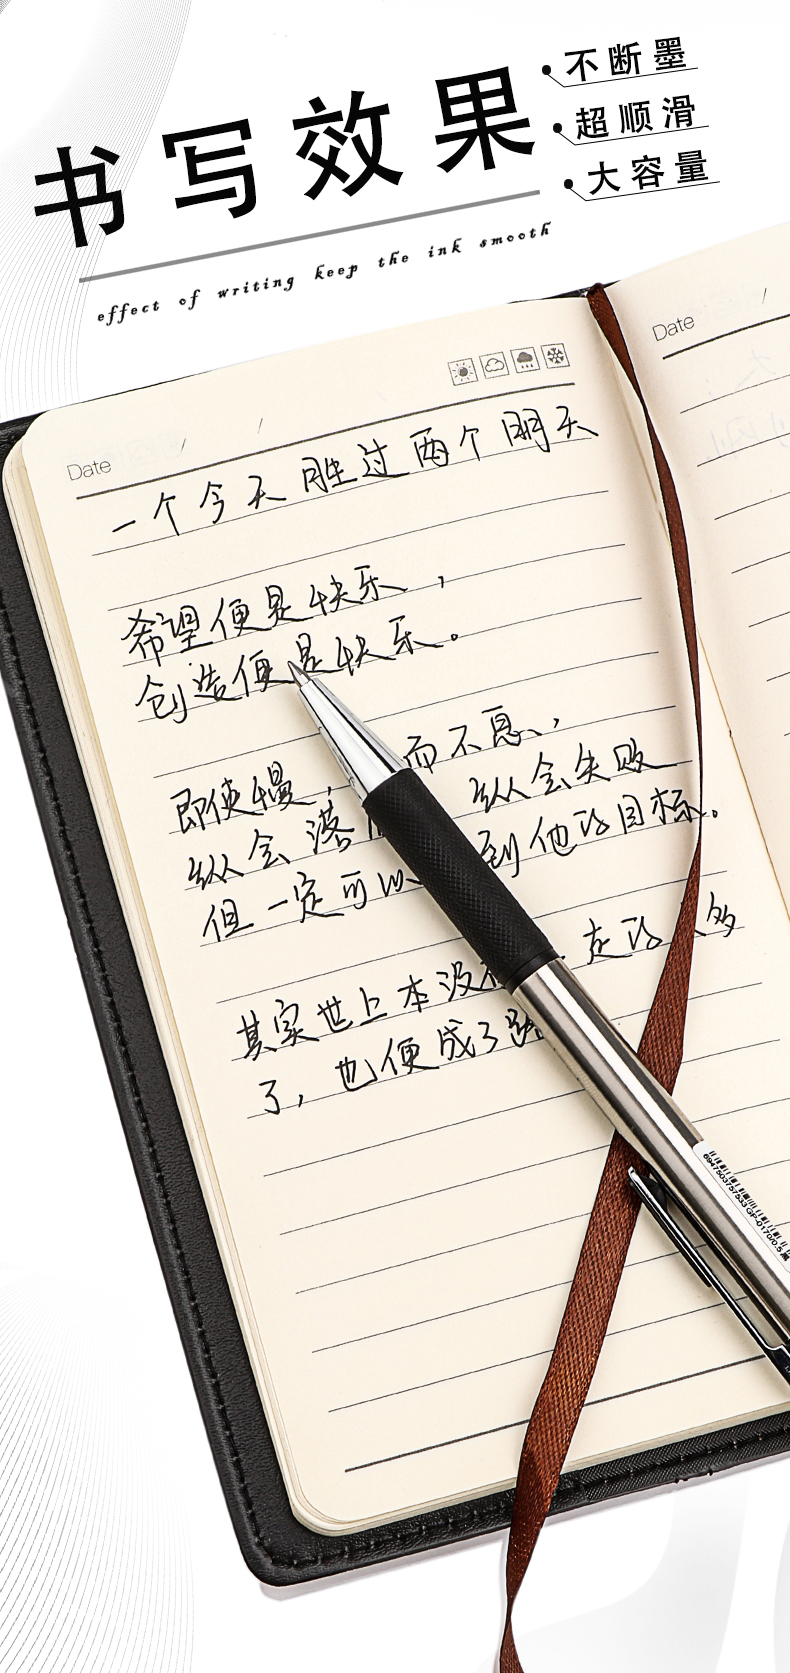 书写效果
不断墨
超顺滑
大容量
effect of writing keep the ink smooth
Date / /
Date /
一个今天胜过两个明天
希望便是快乐，
创造便是快乐。
即使慢， 而不息，
纵会落 纵会失败
但一定可以 到他的目标。
其实世上本没 走的 多
了，也便成了路
6947503757533 GP-0170/0.5 黑